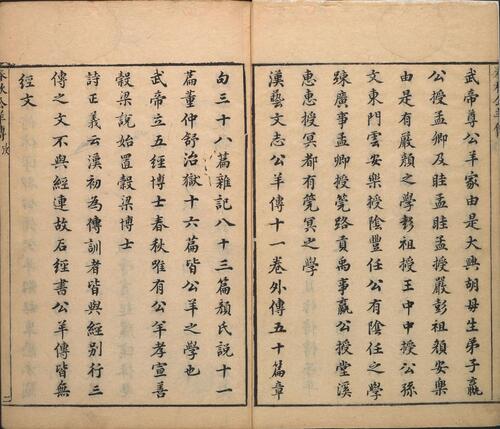 武帝尊公羊家由是大興胡母生弟子嬴
公授孟卿及眭孟眭孟授嚴彭祖顏安樂
由是有嚴顏之學彭祖授王中中授公孫
文東門雲安樂授陰豐任公有陰任之學
踈廣事孟卿授筦路貢禹事嬴公授堂溪
惠惠授冥都有筦冥之學
漢藝文志公羊傳十一卷外傳五十篇章
句三十八篇雜記八十三篇顏氏說十一
篇董仲舒治獄十六篇皆公羊之學也
武帝立五經博士春秋雖有公羊孝宣善
榖梁說始置榖梁博士
詩正義云漢初為傳訓者皆與經別行三
傳之文不與經連故石經書公羊傳皆無
經文
春秋公羊傳攷
二